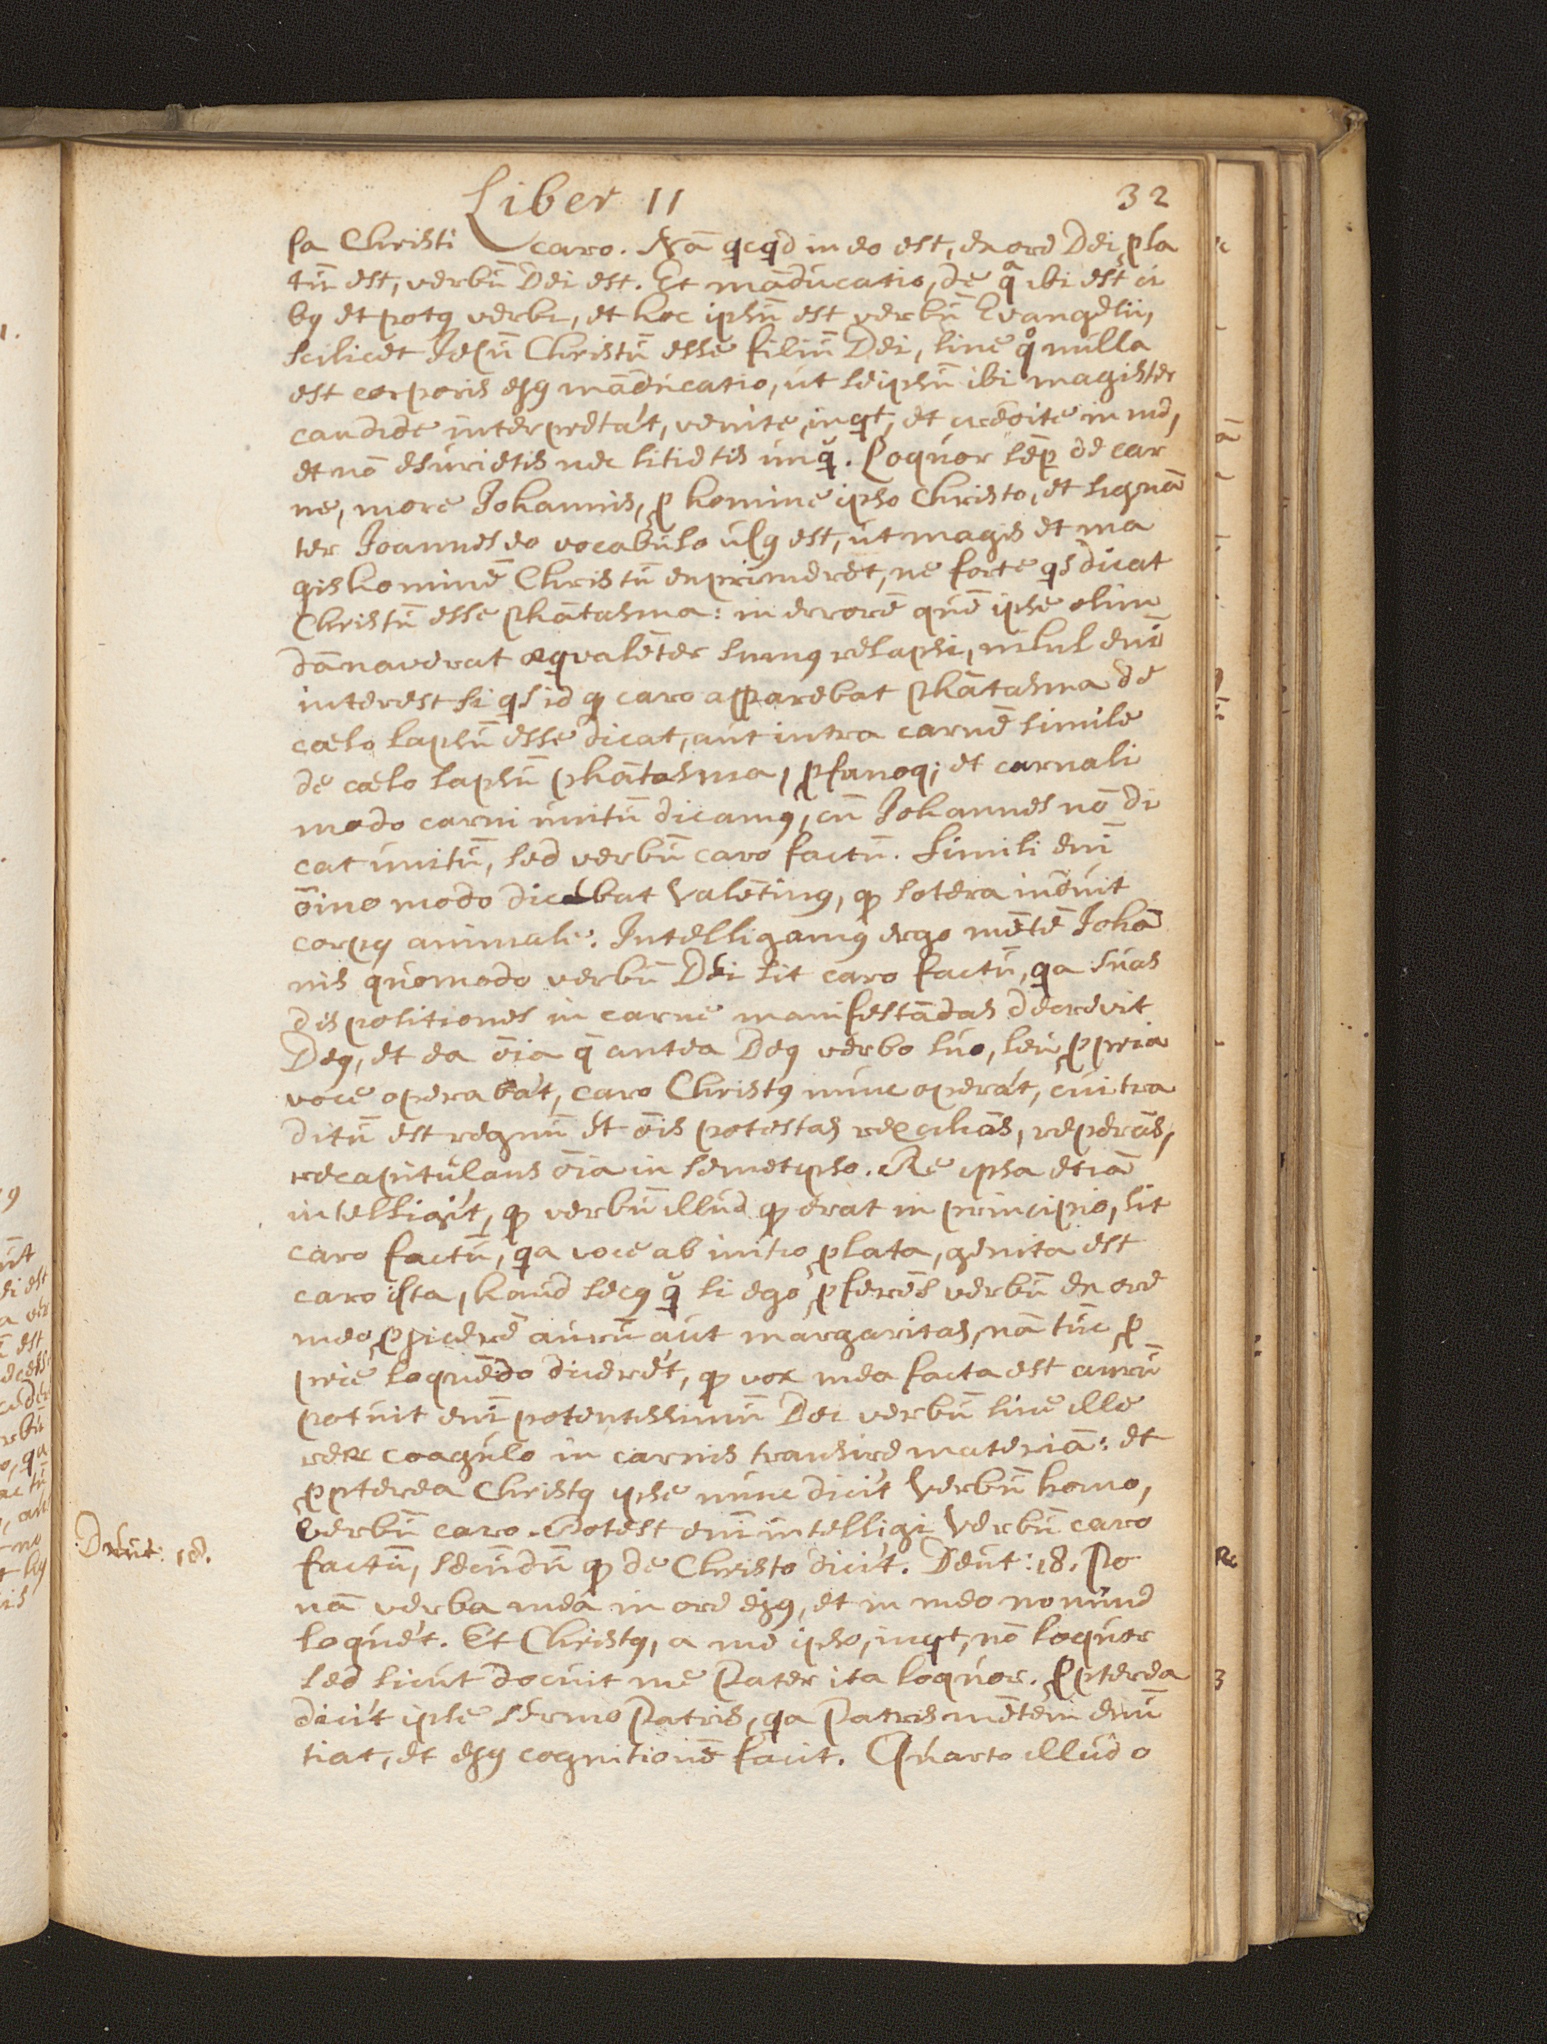 Liber II 32
sa Christi caro. Nā qcqd in eo est, ex ore Dei ꝓla
tū est, verbū Dei est. Et māducatio, de qª ibi est ci
bꝯ et potꝯ verbi, et hoc ipsū est verbū Evangelii,
scilicet Jesū Christū esse filiū Dei, sine qº nulla
est corporis ejꝯ māducatio, ut seipsū ibi magister
candide interpretat, venite, inqt, et credite in me,
et nō esurietis nec sitietis unq̃. Loquor sēp de car
ne, more Johannis, ꝓ homine ipso Christo, et signā
ter Joannes eo vocabulo usꝯ est, ut magis et ma
gis hominē Christū exprimeret, ne forte qs dicat
Christū esse phātasma: in errorē quē ipse olim
dānaverat æqvalēter sumꝯ relapsi, nihil enī
interest si qs id qꝫ caro apparebat phātasma de
cælo lapsū esse dicat, aut intra carnē simile
de cælo lapsū phātasma, ꝓfanoq; et carnali
modo carni unitū dicamꝯ, cū Johannes nō di
cat unitū, sed verbū caro factū. Simili enī
ōino modo dicebat Valētinꝯ, qꝫ sotera induit
corpꝯ animale. Intelligamꝯ ergo mētē Johā
nis quomodo verbū Dei sit caro factū, qa suas
dispositiones in carne manifestādas decrevit
Deꝯ, et ea ōia q̄ antea Deꝯ verbo suo, seu ꝓpria
voce operabat, caro Christꝯ nunc operat, cui tra
ditū est regnū et ōis potestas recōciliās, reperās,
recapitulans ōia in semetipso. Re ipsa etiā
intelligit, qꝫ verbū illud qꝫ erat in principio, sit
caro factū, qa voce ab initio ꝓlata, genita est
caro ista, haud secꝯ q̃ si ego ꝓferēs verbū ex ore
meo ꝓjicerē aurū aut margaritas, nā tūc ꝓ
prie loquēdo diceret, qꝫ vox mea facta est aurū
potuit enī potentissimū Dei verbū sine ille
rere coagulo in carnis transire materiā: et
ꝓpterea Christꝯ ipse nunc dicit Verbū homo,
Verbū caro. Potest enī intelligi Verbū caro
factū, secūdū qꝫ de Christo dicit. Deut: 18. Po
nā verba mea in ore ejꝯ, et in meo nomine
loquet. Et Christꝯ, a me ipso, inqt, nō loquor
sed sicut docuit me Pater ita loquor. ꝓpterea
dicit ipse sermo Patris, qa Patris mētem enū
tiat, et ejꝯ cognitionē facit. Quarto illud o
Deut: 18.